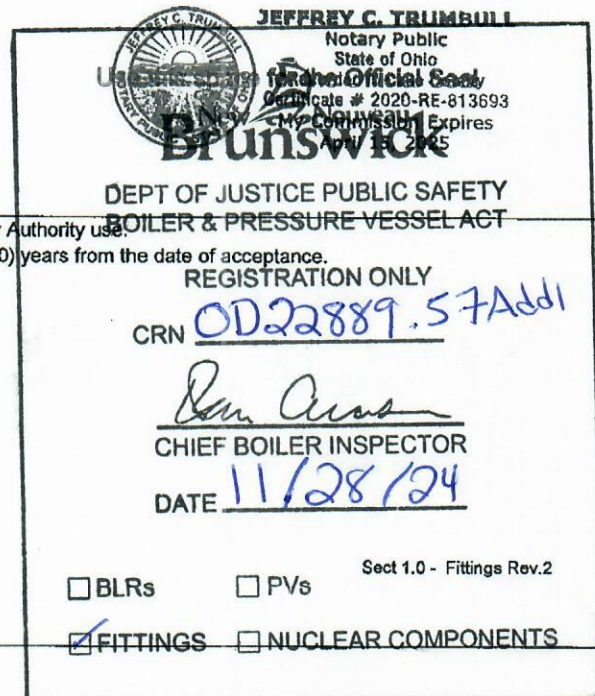 JEFFREY C. TRUMBULL
Notary Public
State of Ohio
for the Official Seal
Certificate # 2020-RE-813693
My Commission Expires
April 15, 2025
Brunswick
DEPT OF JUSTICE PUBLIC SAFETY
BOILER & PRESSURE VESSEL ACT
Authority use.
0) years from the date of acceptance.
REGISTRATION ONLY
CRN OD22889.57Add1
CHIEF BOILER INSPECTOR
DATE 11/28/24
Sect 1.0 - Fittings Rev.2
BLRs PVs
FITTINGS NUCLEAR COMPONENTS